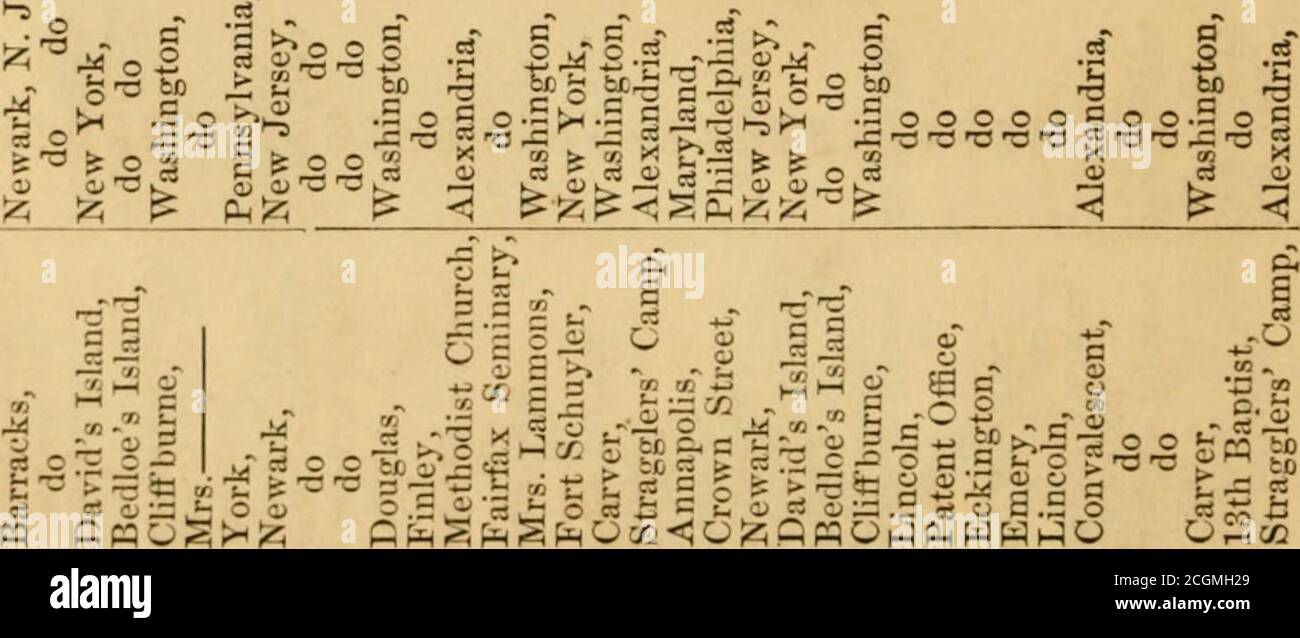 Barracks, Newark, N. J
do do do
David's Island, New York,
Bedloe's Island, do do
Cliffburne, Washington,
Mrs.—— do
York, Pennsylvania,
Newark, New Jersey,
do do do
do do do
Douglas, Washington,
Finley, do
Methodist Church, Alexandria,
Fairfax Seminary, do
Mrs. Lammons, Washington,
Fort Schuyler, New York,
Carver, Washington,
Stragglers' Camp, Alexandria,
Annapolis, Maryland,
Crown Street, Philadelphia,
Newark, New Jersey,
David's Island, New York,
Bedloe's Island, do do
Cliffburne, Washington,
Lincoln, do
Patent Office, do
Eckington, do
Emery, do
Lincoln, do
Convalescent, Alexandria,
do do
do do
Carver, Washington,
13th Baptist, do
Stragglers' Camp, Alexandria,
alamy
Image ID: 2CGMH29
www.alamy.com